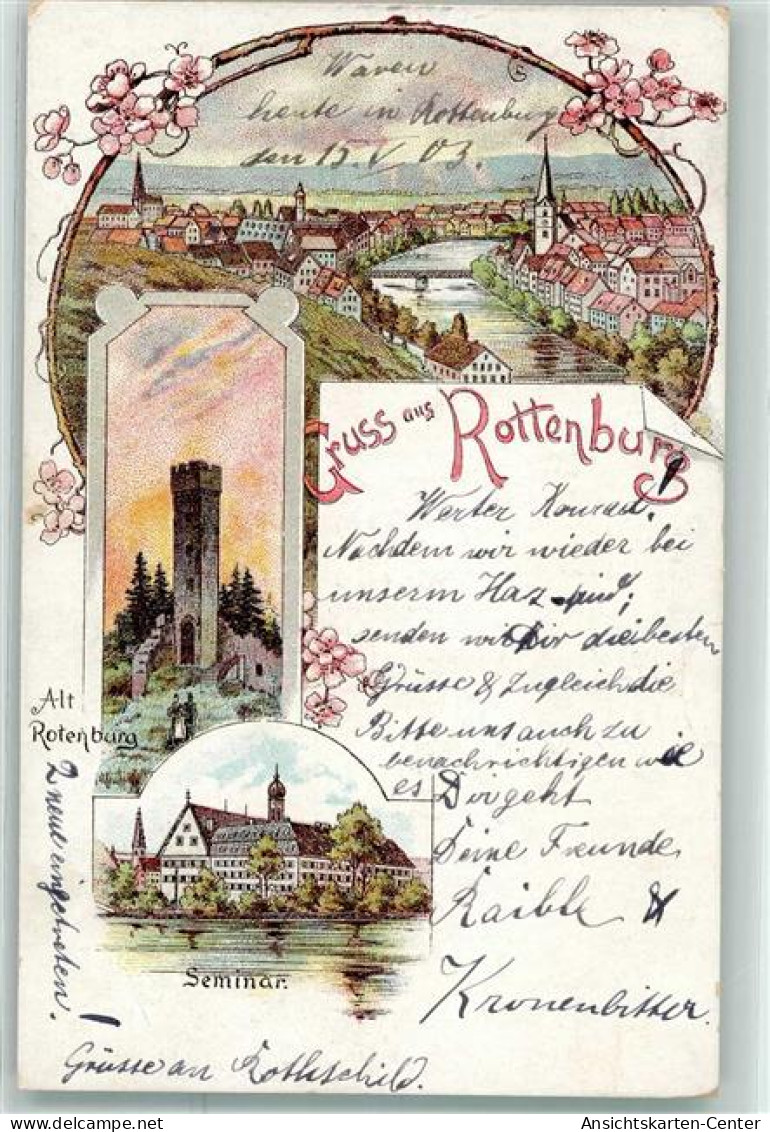 Waren
heute in Rottenburg
den 15. V 03.
Gruss aus Rottenburg
Werter Konrad.
Nachdem wir wieder bei
unserm Haz sind;
senden wir Dir die besten
Grüsse & zugleich die
Bitte uns auch zu
benachrichtigen wie
es Dir geht
Deine Freunde
Raible &
Kronenbitter.
Alt
Rotenburg
2 neue eingetreten!
Seminar.
Grüsse an Rothschild.
www.delcampe.net
Ansichtskarten-Center